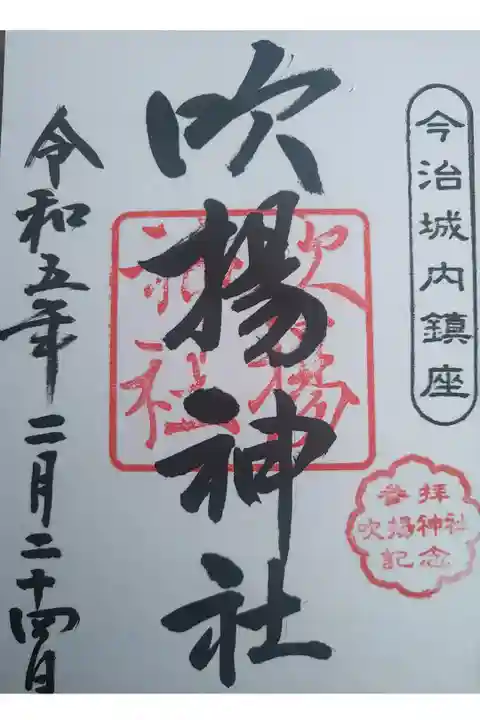 今治城内鎮座
吹揚神社
吹揚
神社
令和五年二月二十四日
参拝
吹揚神社
記念